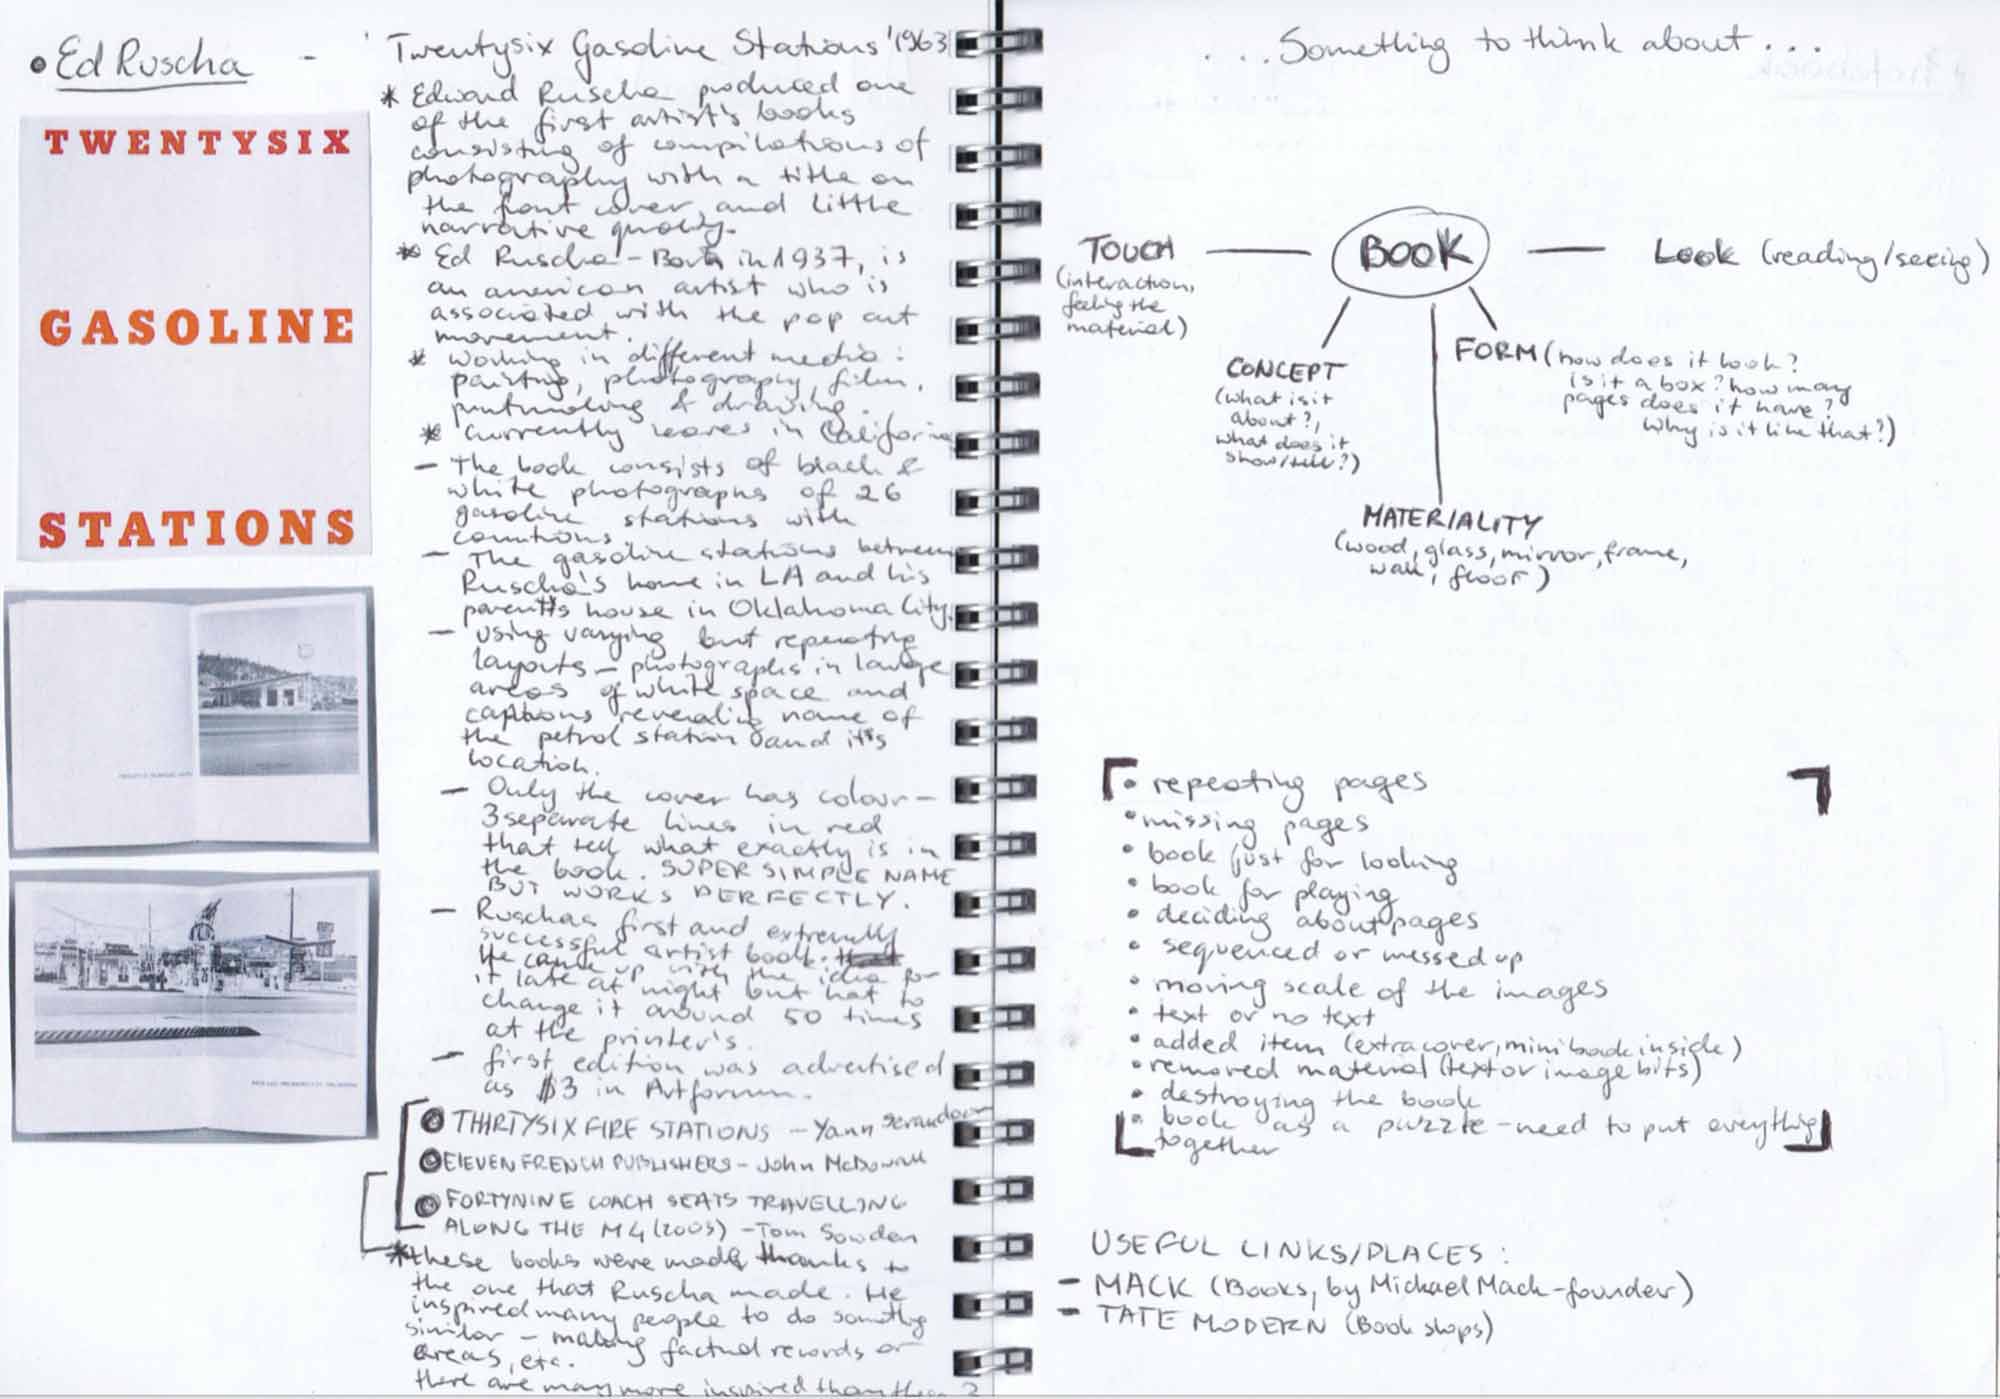 • Ed Ruscha - 'Twentysix Gasoline Stations' 1963
TWENTYSIX
GASOLINE
STATIONS
* Edward Ruscha produced one
of the first artist's books
consisting of compilations of
photography with a title on
the front cover, and little
narrative quality.
* Ed Ruscha - Born in 1937, is
an american artist who is
associated with the pop art
movement.
* Working in different media:
painting, photography, film,
printmaking & drawing.
* Currently leaves in California
- The book consists of black &
white photographs of 26
gasoline stations with
- The gasoline stations between
Ruscha's home in LA and his
parents house in Oklahoma City.
- using varying but repeating
layouts - photographs in large
areas of white space and
captions revealing name of
the petrol station and it's
location.
- Only the cover has colour -
3 separate lines in red
that tell what exactly is in
the book. SUPER SIMPLE NAME
BUT WORKS PERFECTLY.
- Ruschas first and extremely
successful artist book.
He came up with the idea for
it late at night but hat to
change it around 50 times
at the printer's.
- first edition was advertised
as $3 in Artforum.
THIRTYSIX FIRE STATIONS - Yann Serandour
ELEVEN FRENCH PUBLISHERS - John McDowall
FORTYNINE COACH SEATS TRAVELLING
ALONG THE M4 (2003) - Tom Sowden
* these books were made thanks to
the one that Ruscha made. He
inspired many people to do something
similar - making factual records or
areas, etc.
there are many more inspired than these
...Something to think about...
BOOK
TOUCH
(interaction,
feeling the
material)
Look (reading/seeing)
CONCEPT
(what is it
about?,
what does it
show/tell?)
FORM (how does it look?
is it a box? how many
pages does it have?
Why is it like that?)
MATERIALITY
(wood, glass, mirror, frame,
wall, floor)
• repeating pages
• missing pages
• book just for looking
• book for playing
• deciding about pages
• sequenced or messed up
• moving scale of the images
• text or no text
• added item (extra cover, mini book inside)
• removed material (text or image bits)
• destroying the book
• book as a puzzle - need to put everything
together
USEFUL LINKS/PLACES:
- MACK (Books, by Michael Mack - founder)
- TATE MODERN (Book shops)